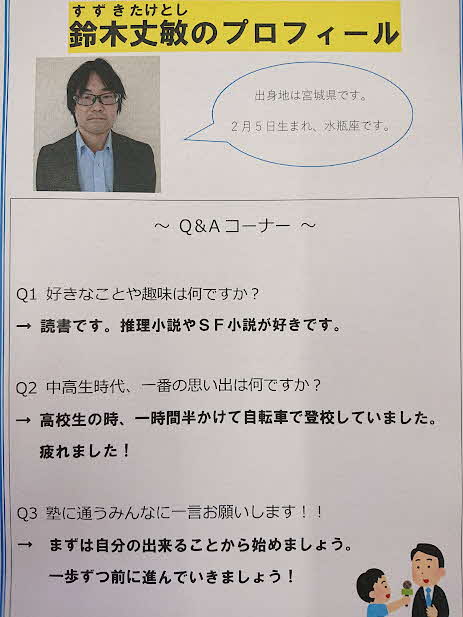 すずきたけとし
鈴木丈敏のプロフィール
出身地は宮城県です。
2月5日生まれ、水瓶座です。
～ Q&Aコーナー ～
Q1 好きなことや趣味は何ですか？
→ 読書です。推理小説やＳＦ小説が好きです。
Q2 中高生時代、一番の思い出は何ですか？
→ 高校生の時、一時間半かけて自転車で登校していました。
疲れました！
Q3 塾に通うみんなに一言お願いします！！
→ まずは自分の出来ることから始めましょう。
一歩ずつ前に進んでいきましょう！